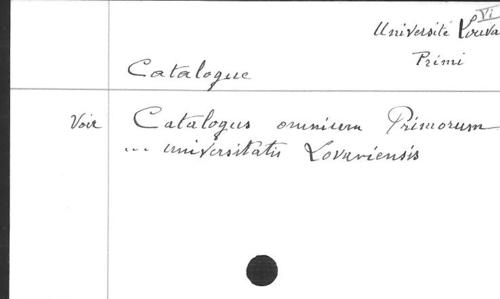 VI
Université Louva
Primi
Catalogue
Voir Catalogus omnium Primorum
... universitatis Lovaniensis